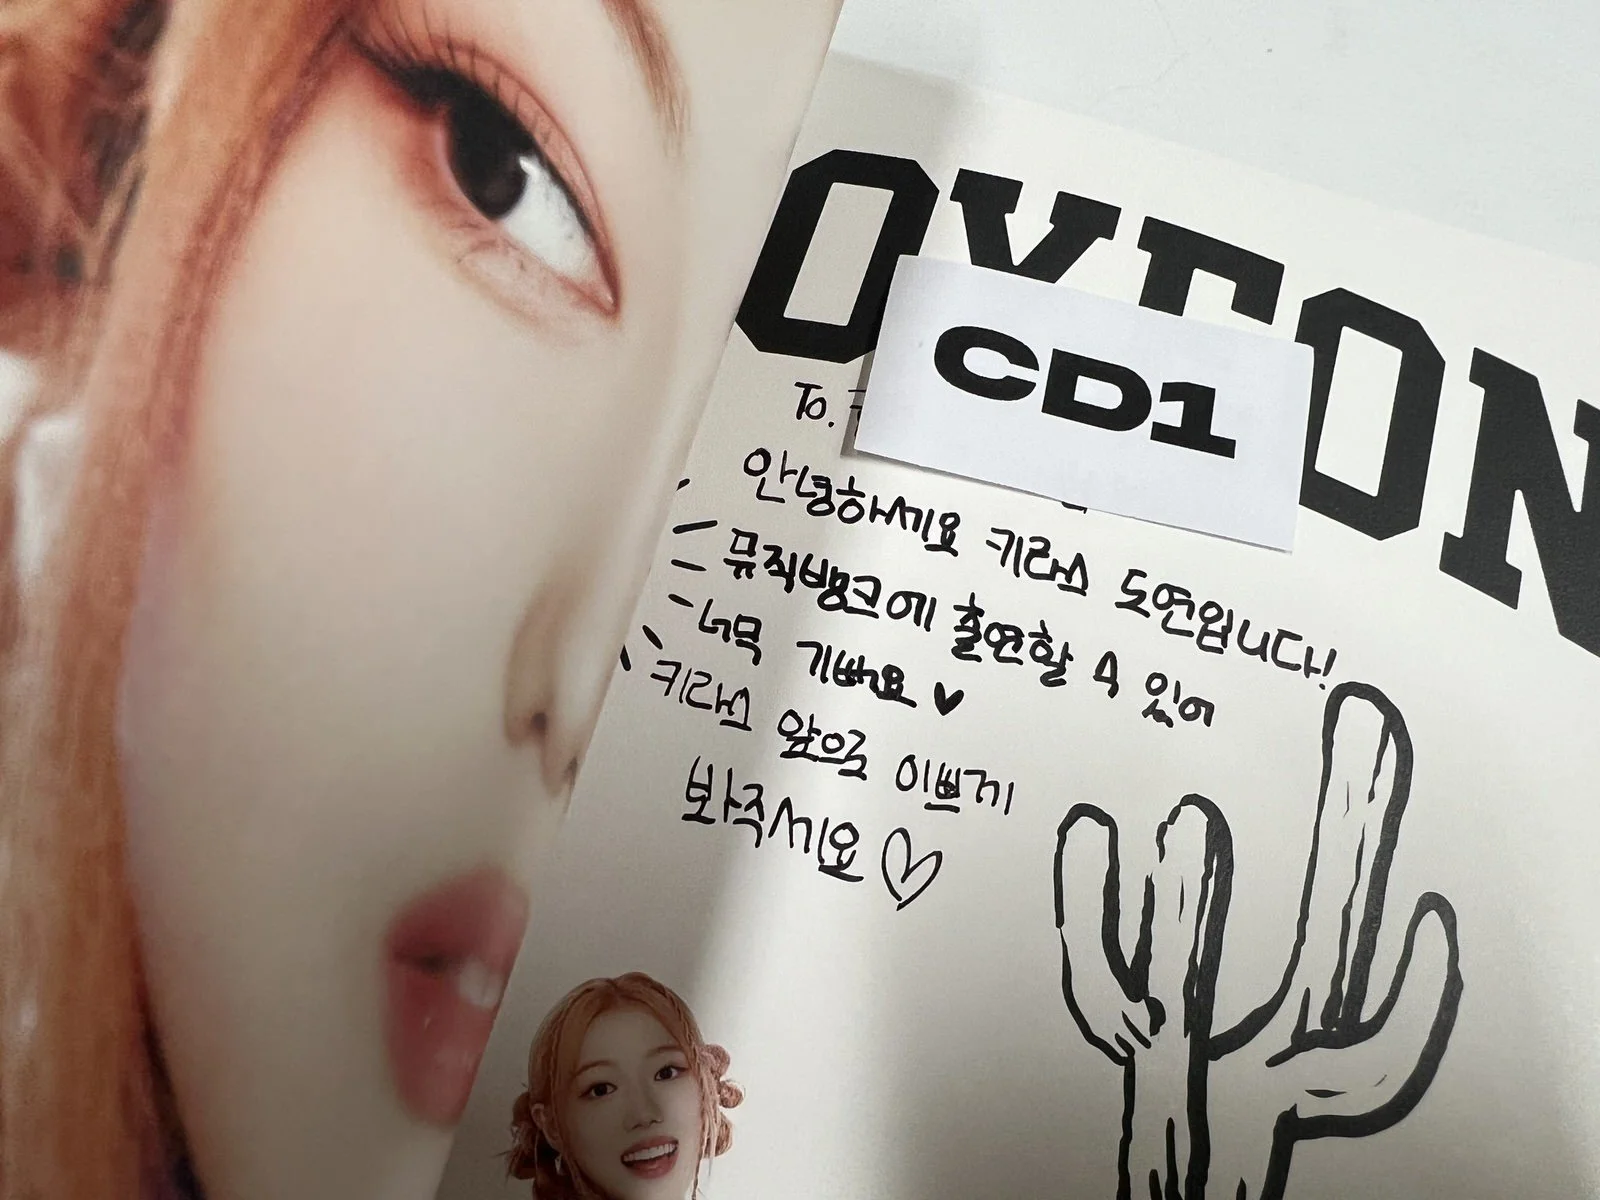 CD1
To.
안녕하세요 키라스 도연입니다!
뮤직뱅크에 출연할 수 있어
너무 기뻐요♥
키라스 앞으로 이쁘게
봐주세요♡